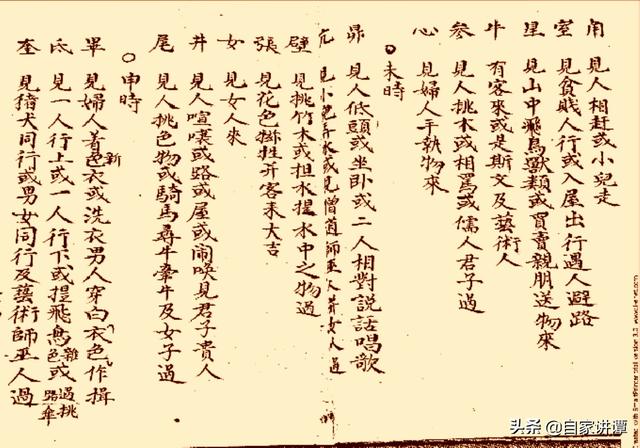 角 見人相赶或小兒走
室 見貧賤人行或入屋出行遇人避路
星 見山中飛鳥獸類或買賣親朋送物來
牛 有客來或是斯文及藝術人
參 見人挑木或相罵或儒人君子過
心 見婦人手執物來
○未時
昴 見人低頭或坐卧或二人相對說話唱歌
亢 見小兒弄水或見僧道師巫人并女人過
壁 見挑竹木或担水提水中之物過
張 見花色掛牲并客來大吉
女 見女人來
井 見人喧嚷或路或屋或鬧喚見君子貴人
尾 見人挑色物或騎馬尋牛牽牛及女子過
○申時
畢 見婦人着新色衣或洗衣男人穿白衣色作揖
氐 見一人行上或一人行下或提飛鳥雜色或過挑路傘
奎 見猪犬同行或男女同行及藝術師巫人過
头条 @自家讲谭